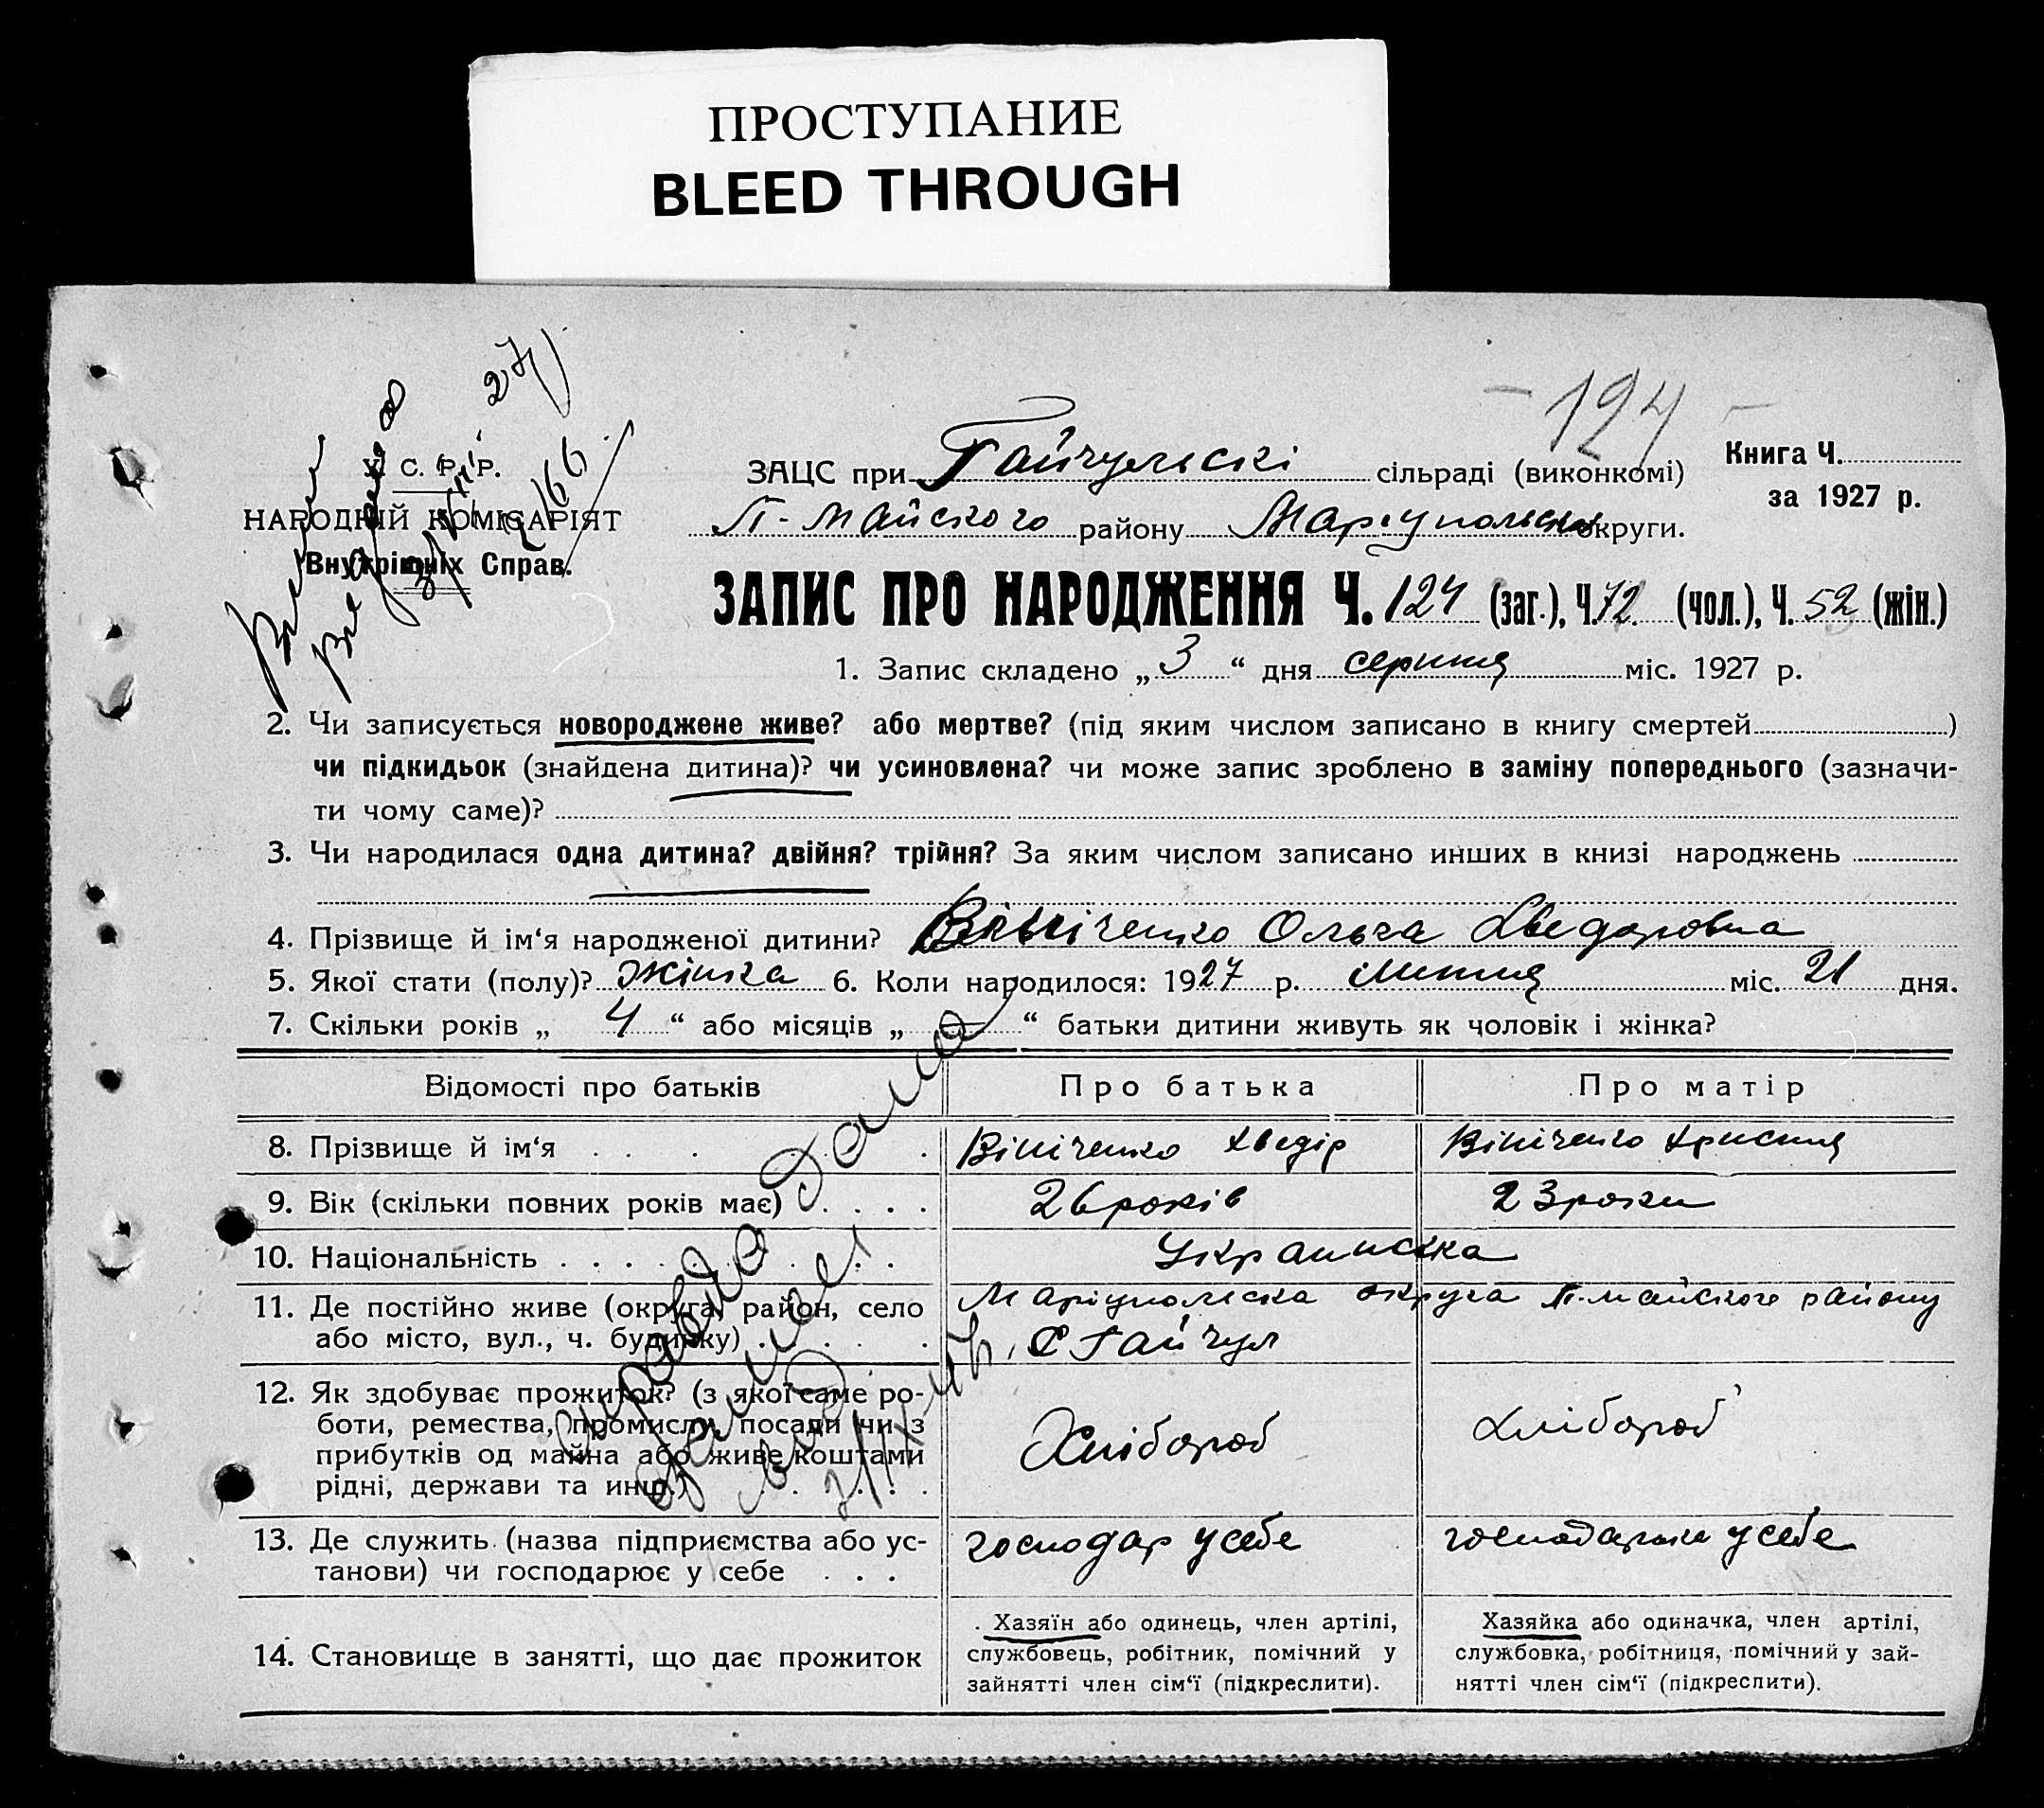 ПРОСТУПАНИЕ
BLEED THROUGH
27
66
-124-
У. С. Р. Р.
НАРОДНІЙ КОМІСАРІЯТ
Внутрішніх Справ.
ЗАЦС при Гайчульскі сільраді (виконкомі)
Книга Ч.
за 1927 р.
П-Майского району Маріупольскої округи.
ЗАПИС ПРО НАРОДЖЕННЯ Ч. 124 (заг.), Ч. 72 (чол.), Ч. 52 (жін.)
1. Запис складено „ 3 “ дня серпня міс. 1927 р.
2. Чи записується новороджене живе? або мертве? (під яким числом записано в книгу смертей )
чи підкидьок (знайдена дитина)? чи усиновлена? чи може запис зроблено в заміну попереднього (зазначи-
ти чому саме)?
3. Чи народилася одна дитина? двійня? трійня? За яким числом записано инших в книзі народжень
4. Прізвище й ім‘я народженої дитини? Вініченко Ольга Хведоровна
5. Якої стати (полу)? жінка 6. Коли народилося: 1927 р. липня міс. 21 дня.
7. Скільки років „ 4 “ або місяців „ — “ батьки дитини живуть як чоловік і жінка?
Відомості про батьків
Про батька
Про матір
8. Прізвище й ім‘я . . . . .
Вініченко Хведір
Вініченко Христня
9. Вік (скільки повних років має) . . . .
26 років
23 роки
10. Національність . . . . . . . .
Украинска
11. Де постійно живе (округа, район, село
або місто, вул., ч. будинку) . . . .
Маріупольска округа П-майского району
С Гайчул
12. Як здобуває прожиток? (з якої саме ро-
боти, ремества, промислу, посади чи з
прибутків од майна або живе коштами
рідні, держави та инш.) . . . .
Хлібороб
Хлібороб
13. Де служить (назва підприємства або ус-
танови) чи господарює у себе . . .
господар у себе
господарька у себе
14. Становище в занятті, що дає прожиток
Хазяїн або одинець, член артілі,
службовець, робітник, помічний у
зайнятті член сім‘ї (підкреслити).
Хазяйка або одиначка, член артілі,
службовка, робітниця, помічний у зай-
нятті член сім‘ї (підкреслити).